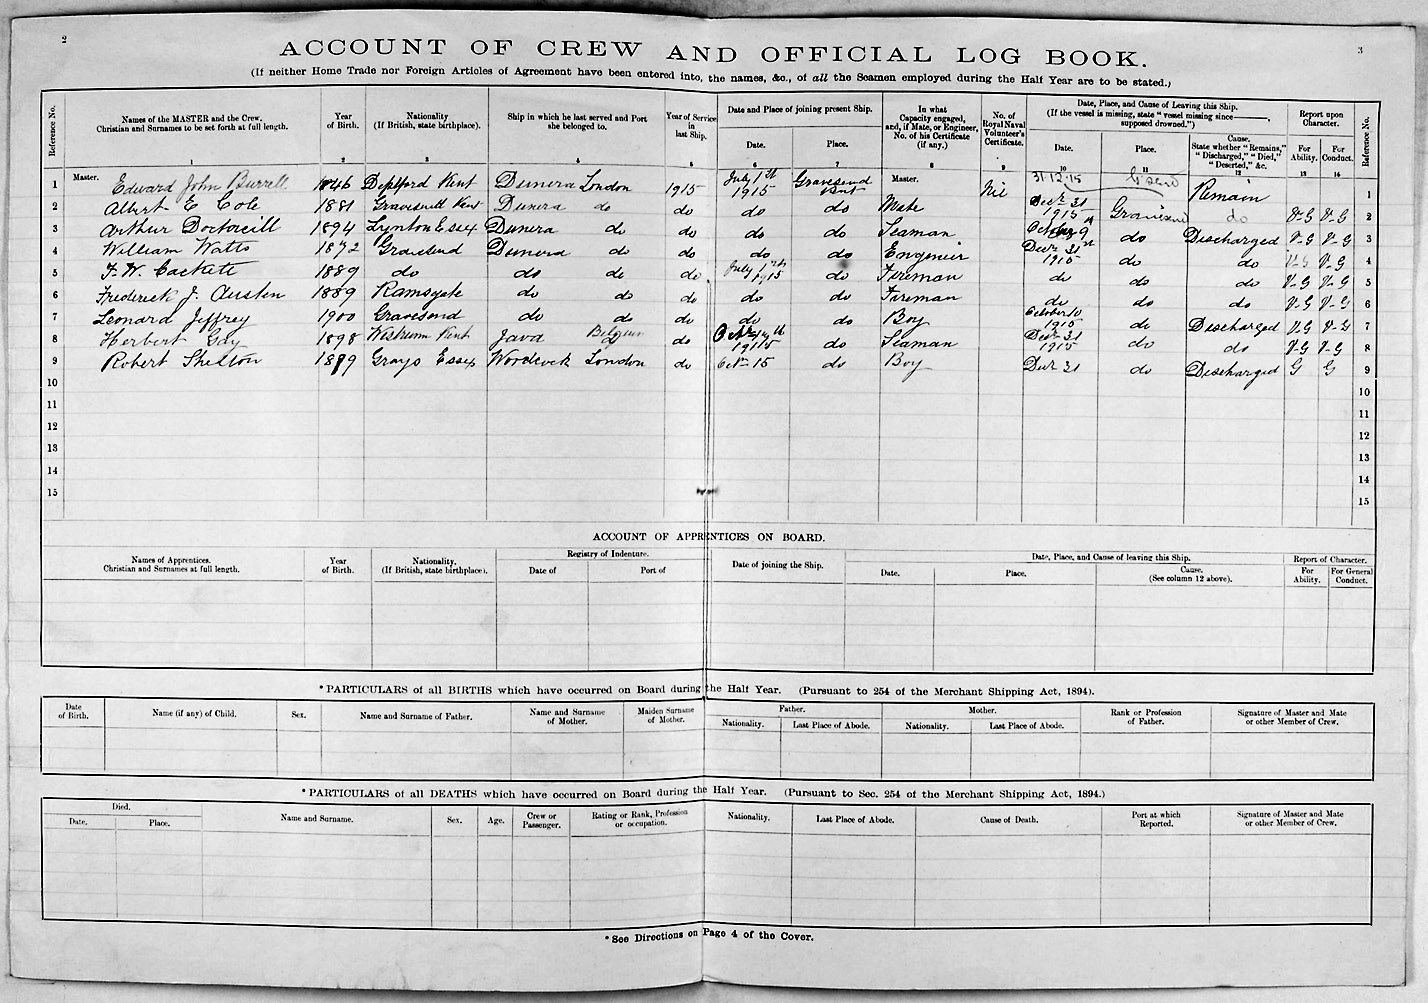 2
3
ACCOUNT OF CREW AND OFFICIAL LOG BOOK.
(If neither Home Trade nor Foreign Articles of Agreement have been entered into, the names, &c., of all the Seamen employed during the Half Year are to be stated.)
Reference No. | Names of the MASTER and the Crew. Christian and Surnames to be set forth at full length. | Year of Birth. | Nationality (If British, state birthplace). | Ship in which he last served and Port she belonged to. | Year of Service in last Ship. | Date and Place of joining present Ship. Date. Place. | In what Capacity engaged, and, if Mate, or Engineer, No. of his Certificate (if any.) | No. of Royal Naval Volunteer's Certificate. | Date, Place, and Cause of Leaving this Ship. (If the vessel is missing, state "vessel missing since———, supposed drowned.") Date. Place. Cause. State whether "Remains," "Discharged," "Died," "Deserted," &c. | Report upon Character. For Ability. For Conduct. | Reference No.
1 2 3 4 5 6 7 8 9 10 11 12 13 14
1 Master. Edward John Burrell 1846 Deptford Kent Dunera London 1915 July 1st 1915 Gravesend Kent Master. Nil 31·12·15 Remain 1
2 Albert E Cole 1881 Gravesend Kent Dunera do do do do Mate Decr 31 1915 Gravesend do V-G V-G 2
3 Arthur 1894 Essex Dunera do do do do Seaman October 9 do Discharged V-G V-G 3
4 William Watts 1872 Gravesend Dunera do do do do Engineer Decr 31st 1915 do do V-G V-G 4
5 F. W. 1889 do do do do July 1st 1915 do Fireman do do do V-G V-G 5
6 Frederick J. Austen 1889 Ramsgate do do do do do Fireman do do do V-G V-G 6
7 Leonard Jeffrey 1900 Gravesend do do do do do Boy October 10 1915 do Discharged V-G V-G 7
8 Herbert 1898 Kent Java do 1915 do Seaman Decr 31 1915 do do V-G V-G 8
9 Robert Shelton Grays Essex Woodcock London do Octr 15 do Boy Decr 31 do Discharged G G 9
10 10
11 11
12 12
13 13
14 14
15 15
ACCOUNT OF APPRENTICES ON BOARD.
Names of Apprentices. Christian and Surnames at full length. | Year of Birth. | Nationality. (If British, state birthplace). | Registry of Indenture. Date of Port of | Date of joining the Ship. | Date, Place, and Cause of leaving this Ship. Date. Place. Cause. (See column 12 above). | Report of Character. For Ability. For General Conduct.
*PARTICULARS of all BIRTHS which have occurred on Board during the Half Year. (Pursuant to 254 of the Merchant Shipping Act, 1894).
Date of Birth. | Name (if any) of Child. | Sex. | Name and Surname of Father. | Name and Surname of Mother. | Maiden Surname of Mother. | Father. Nationality. Last Place of Abode. | Mother. Nationality. Last Place of Abode. | Rank or Profession of Father. | Signature of Master and Mate or other Member of Crew.
*PARTICULARS of all DEATHS which have occurred on Board during the Half Year. (Pursuant to Sec. 254 of the Merchant Shipping Act, 1894.)
Died. Date. Place. | Name and Surname. | Sex. | Age. | Crew or Passenger. | Rating or Rank, Profession or occupation. | Nationality. | Last Place of Abode. | Cause of Death. | Port at which Reported. | Signature of Master and Mate or other Member of Crew.
*See Directions on Page 4 of the Cover.